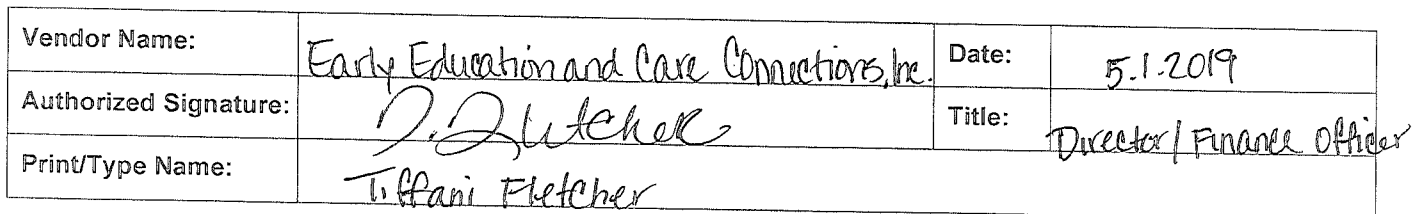 Vendor Name: Early Education and Care Connections, Inc. Date: 5.1.2019
Authorized Signature: T. Fletcher Title: Director/Finance Officer
Print/Type Name: Tiffani Fletcher